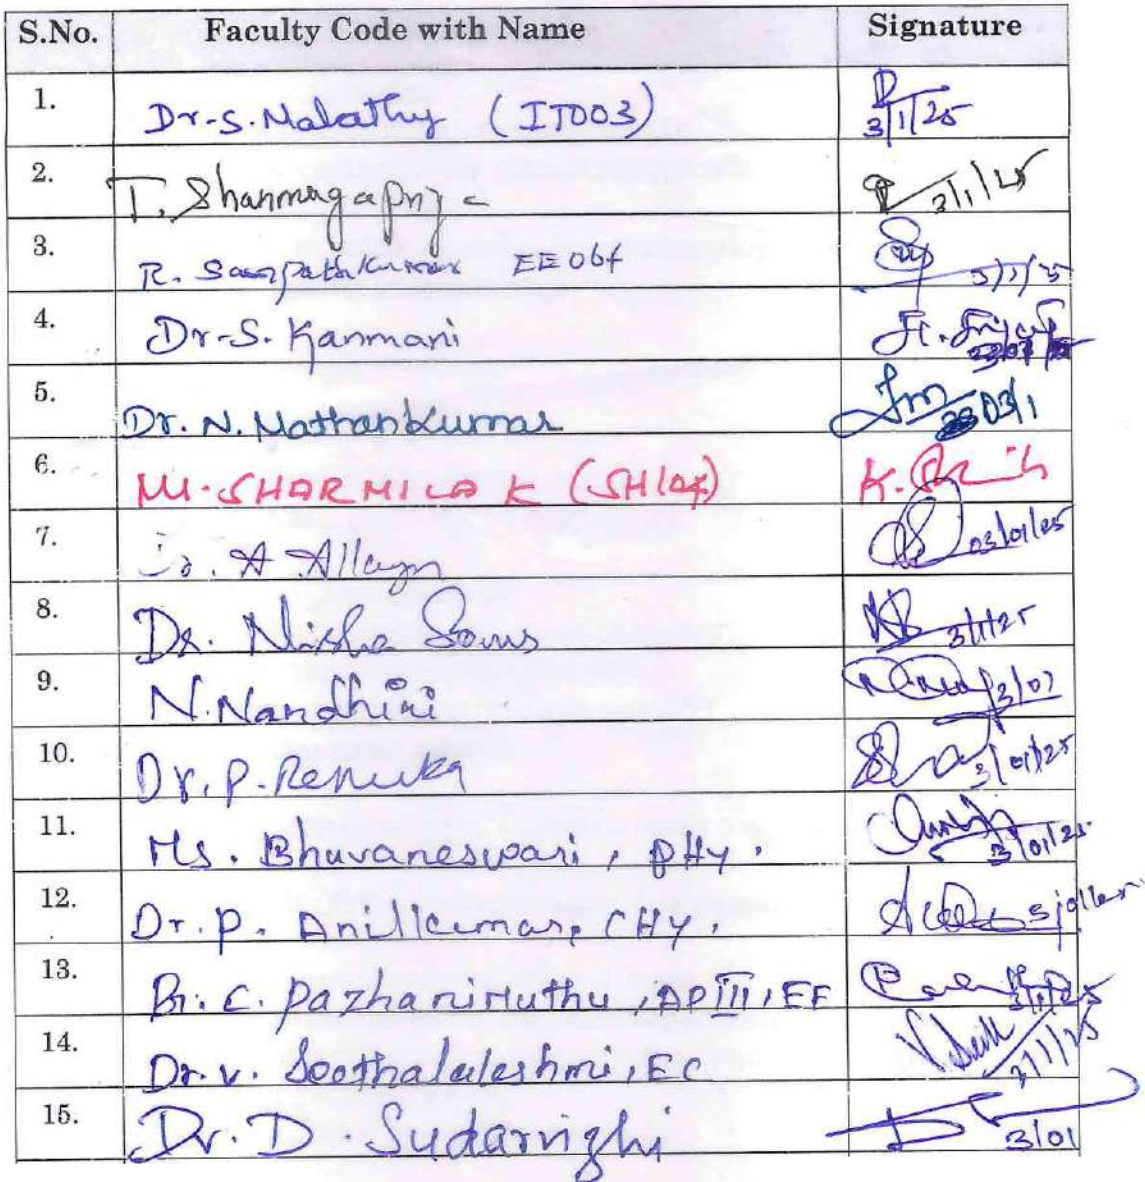 S.No. Faculty Code with Name Signature
1. Dr. S. Malathy (IT003) 3/1/25
2. T. Shanmugapriya 3/1/25
3. R. Sampathkumar 3/1/25
4. Dr. S. Kanmani
5. Dr. N. Mathankumar 03/1
6. SHARMILA K K.
7. A 03/01/25
8. Dr. Nisha Soms 3/1/25
9. N. Nandhini
10. Dr. P. Renuka 3/01/25
11. Ms. Bhuvaneswari, PHy. 3/01/25
12. Dr. P. Anilkumar, CHY.
13. Dr. C. Pazhanimuthu, APIII, EE 3/1/25
14. Dr. V. Seethalakshmi, EC 3/1/25
15. Dr. D. Sudarvizhi 3/01